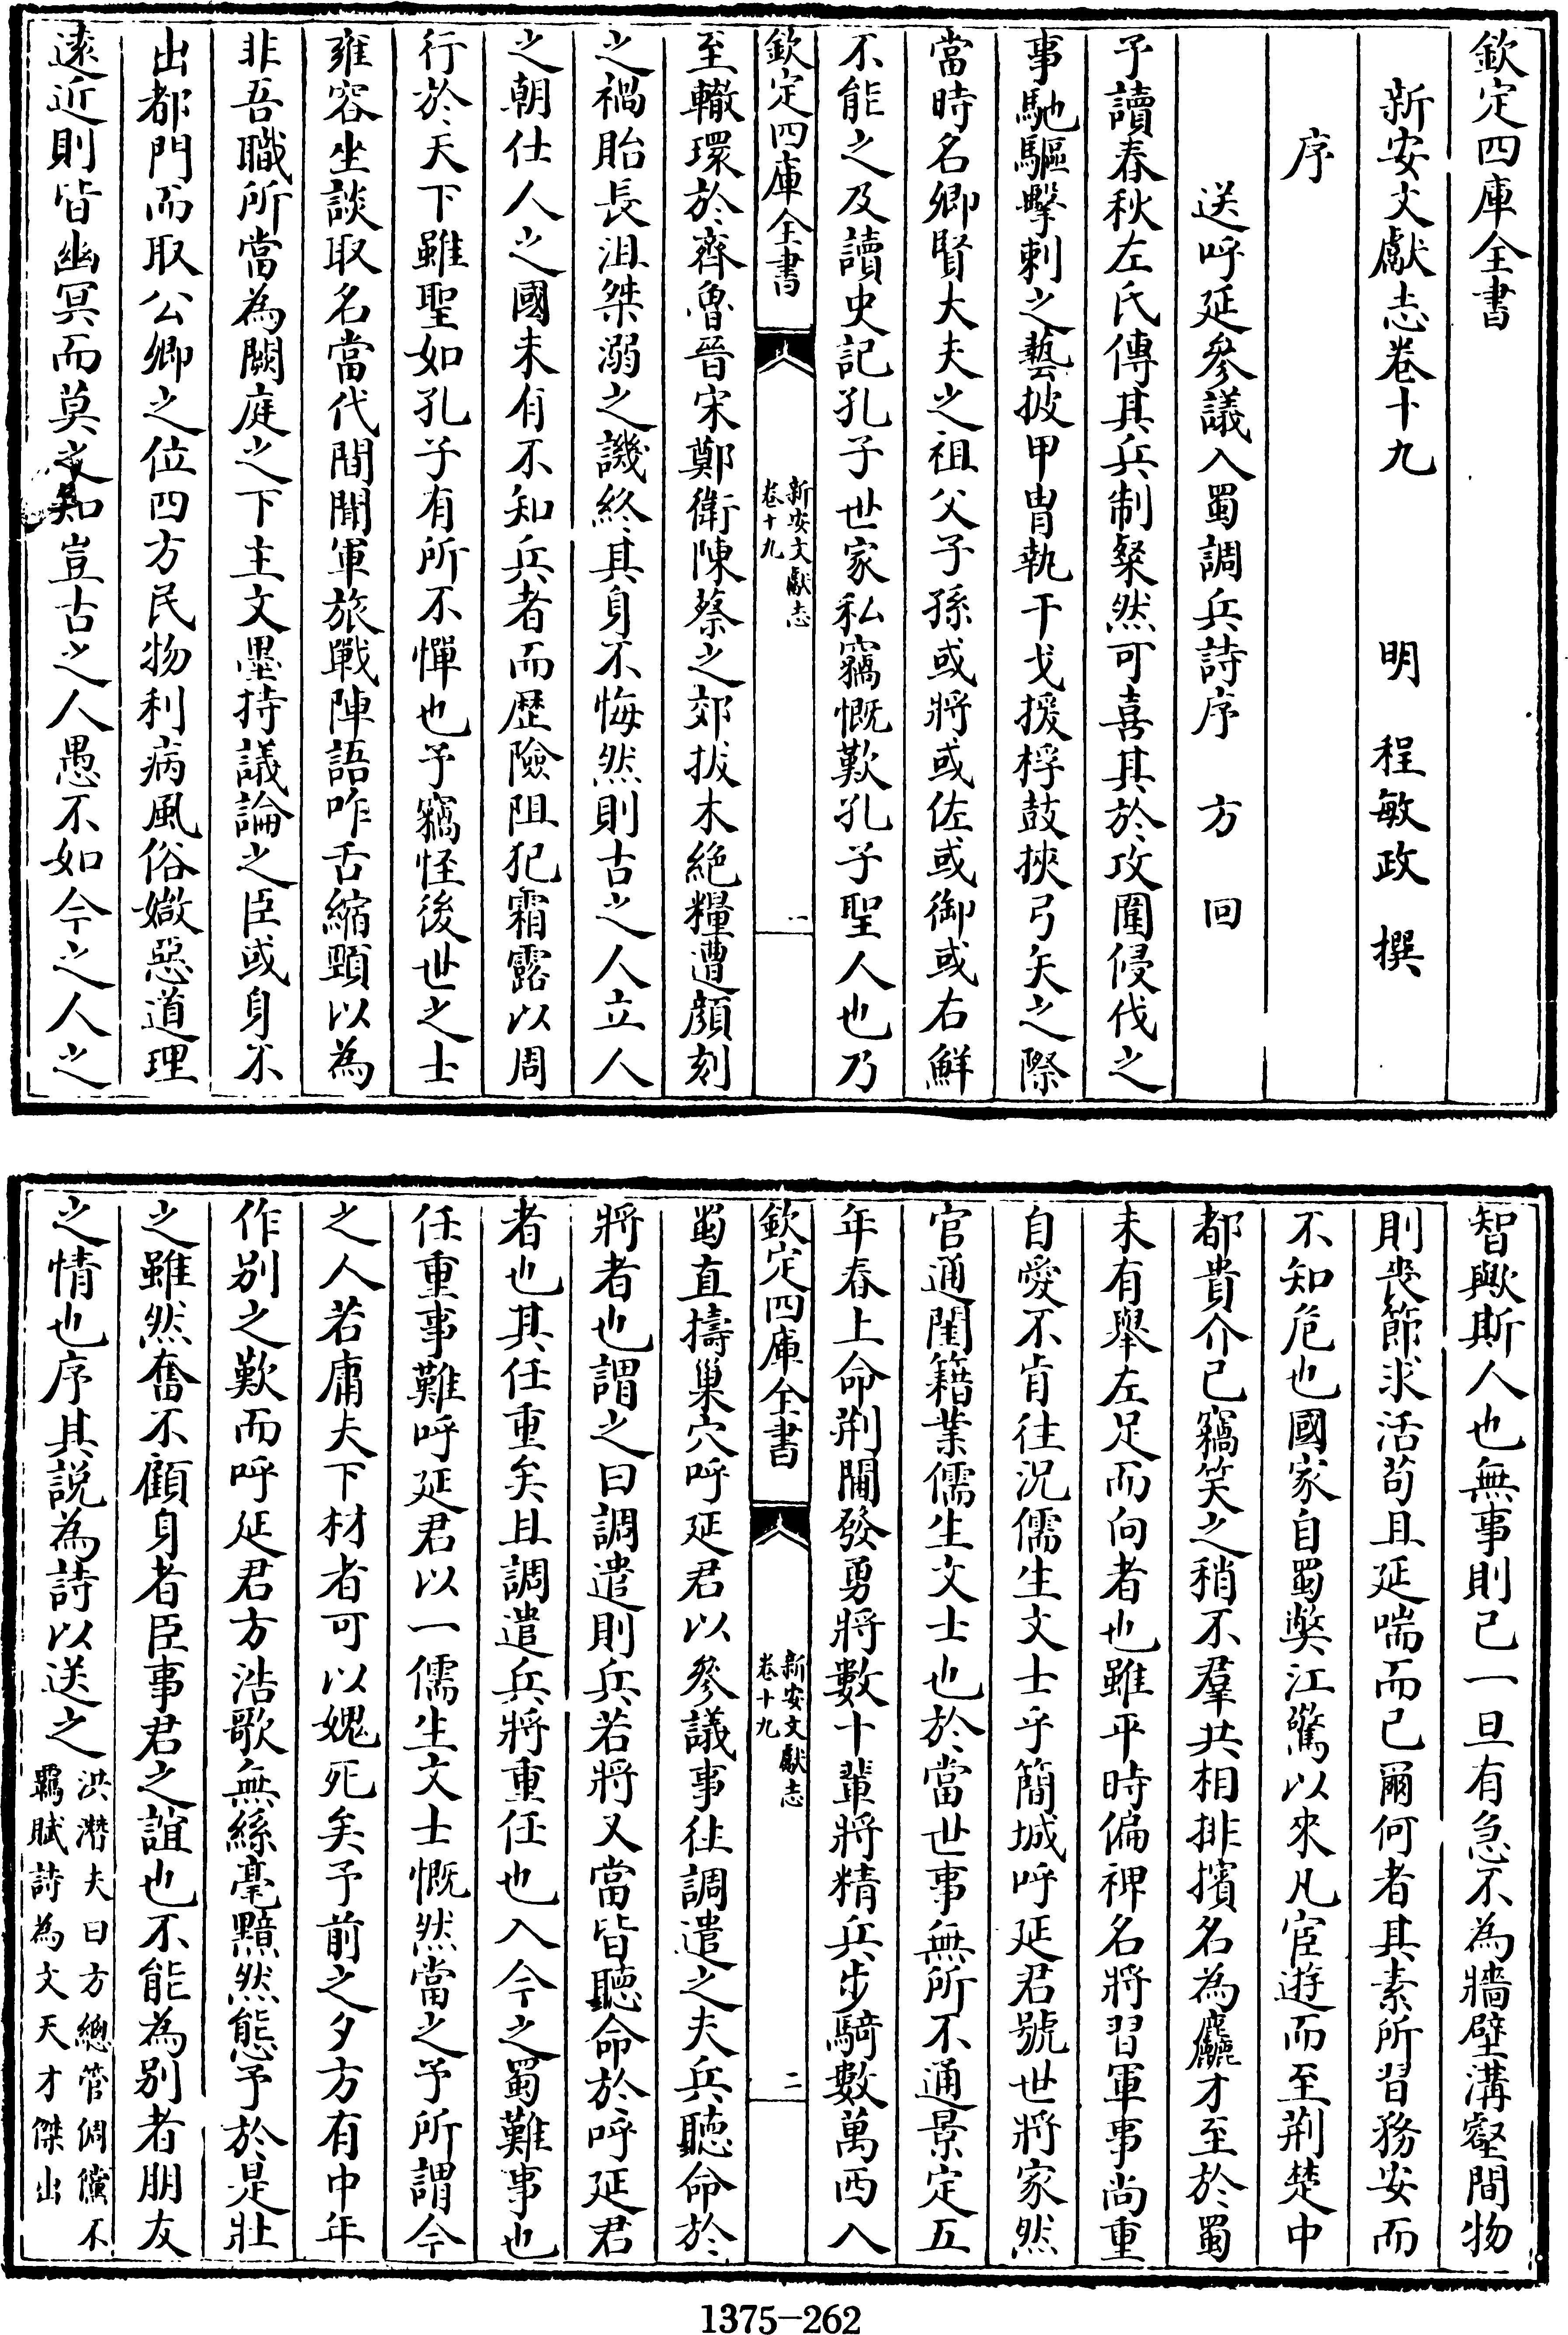 欽定四庫全書
新安文獻志卷十九　明　程敏政　撰
序
送呼延參議入蜀調兵詩序　方　回
予讀春秋左氏傳其兵制粲然可喜其於攻圍侵伐之
事馳驅擊刺之藝披甲胄執干戈援桴鼓挾弓矢之際
當時名卿賢大夫之祖父子孫或將或佐或御或右鮮
不能之及讀史記孔子世家私竊慨歎孔子聖人也乃
欽定四庫全書
新安文獻志
卷十九
一
至轍環於齊魯晉宋鄭衛陳蔡之郊拔木絕糧遭顏刻
之禍貽長沮桀溺之譏終其身不悔然則古之人立人
之朝仕人之國未有不知兵者而歷險阻犯霜露以周
行於天下雖聖如孔子有所不憚也予竊怪後世之士
雍容坐談取名當代間聞軍旅戰陣語咋舌縮頸以為
非吾職所當為闕庭之下主文墨持議論之臣或身不
出都門而取公卿之位四方民物利病風俗媺惡道理
遠近則皆幽冥而莫之知豈古之人愚不如今之人之
智歟斯人也無事則已一旦有急不為牆壁溝壑間物
則喪節求活苟且延喘而已爾何者其素所習務安而
不知危也國家自蜀獘江驚以來凡宦遊而至荆楚中
都貴介已竊笑之稍不羣共相排擯名為麤才至於蜀
未有舉左足而向者也雖平時偏裨名將習軍事尚重
自愛不肯往況儒生文士乎簡城呼延君號世將家然
官通閨籍業儒生文士也於當世事無所不通景定五
年春上命荆閫發勇將數十輩將精兵步騎數萬西入
欽定四庫全書
新安文獻志
卷十九
二
蜀直擣巢穴呼延君以參議事往調遣之夫兵聽命於
將者也謂之曰調遣則兵若將又當皆聽命於呼延君
者也其任重矣且調遣兵將重任也入今之蜀難事也
任重事難呼延君以一儒生文士慨然當之予所謂今
之人若庸夫下材者可以媿死矣予前之夕方有中年
作別之歎而呼延君方浩歌無絲毫黯然態予於是壯
之雖然奮不顧身者臣事君之誼也不能為別者朋友
之情也序其説為詩以送之洪潛夫曰方總管倜儻不
羈賦詩為文天才傑出
1375-262